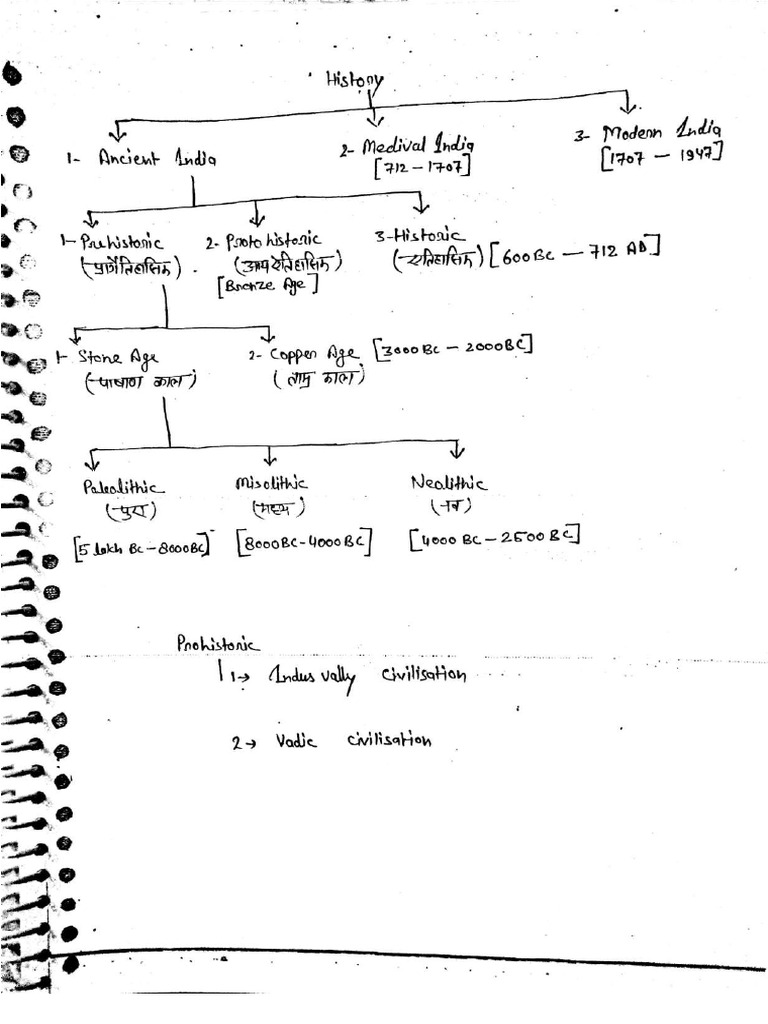 History
1- Ancient India
2- Medival India
[712 - 1707]
3- Modern India
[1707 - 1947]
1- Prehistoric
(प्रागैतिहासिक)
2- Protohistoric
(आद्य ऐतिहासिक)
[Bronze Age]
3- Historic
(ऐतिहासिक) [600 BC - 712 AD]
1- Stone Age
(पाषाण काल)
2- Copper Age [3000 BC - 2000 BC]
(ताम्र काल)
Paleolithic
(पुरा)
[5 lakh BC - 8000 BC]
Misolithic
(मध्य)
[8000 BC - 4000 BC]
Neolithic
(नव)
[4000 BC - 2500 BC]
Prohistoric
1→ Indus vally civilisation
2→ Vadic civilisation